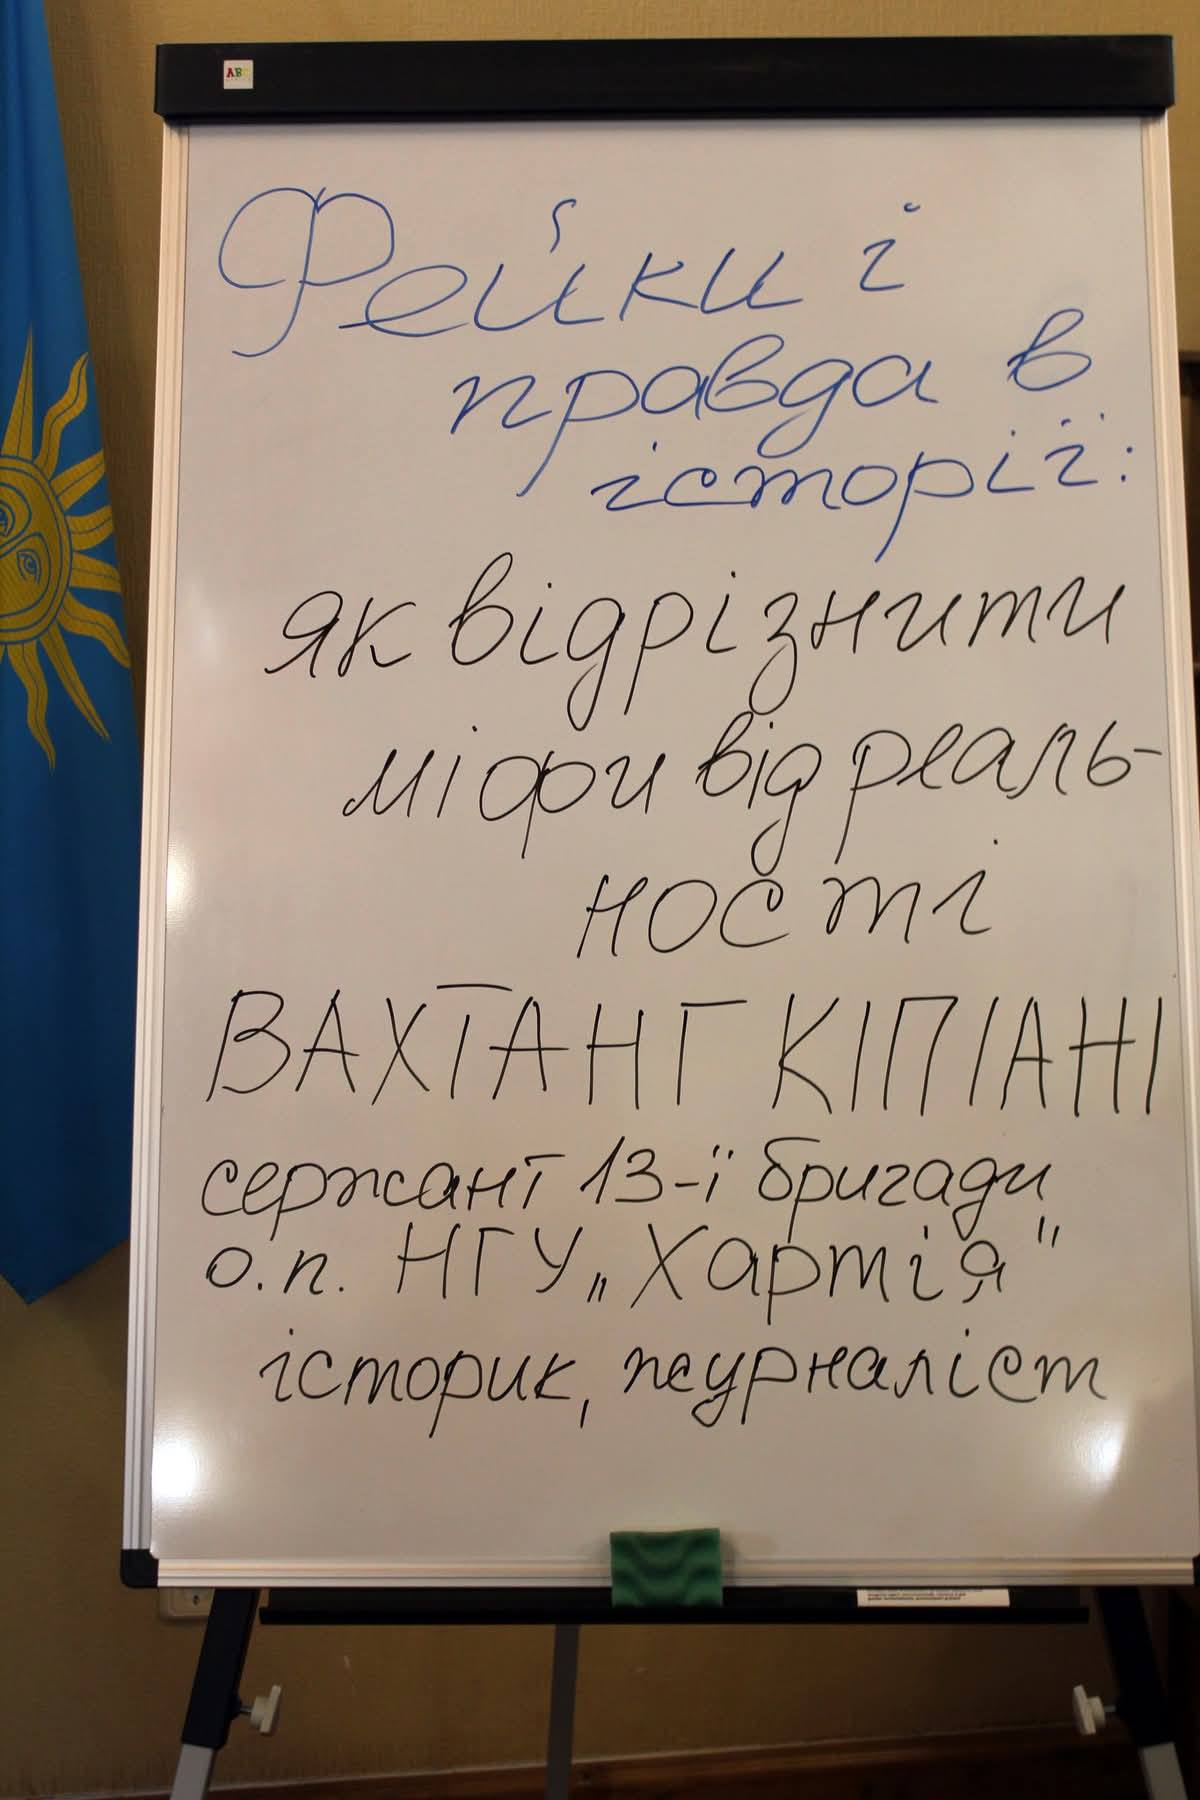 ABC
Фейки і
правда в
історії:
як відрізнити
міфи від реаль-
ності
ВАХТАНГ КІПІАНІ
сержант 13-ї бригади
о.п. НГУ „Хартія"
історик, журналіст